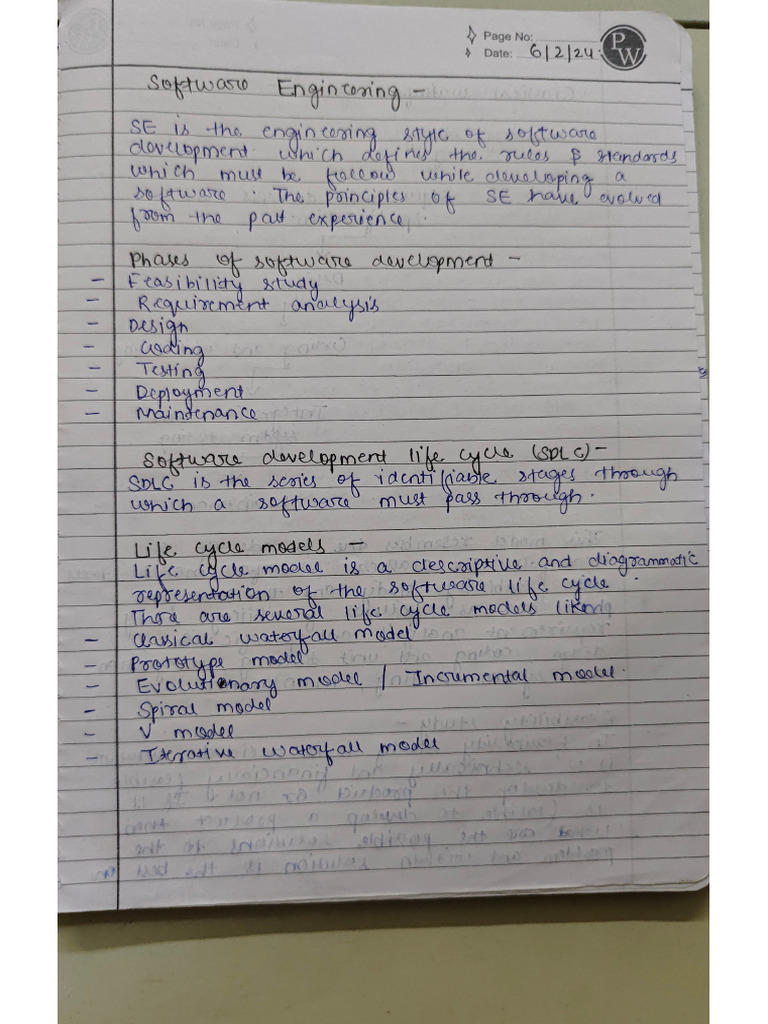 Page No:
Date: 6/2/24
PW
Software Engineering -
SE is the engineering style of software
development which defines the rules & standards
which must be follow while developing a
software. The principles of SE have evolved
from the past experience.
Phases of software development -
- Feasibility study
- Requirement analysis
- Design
- Coding
- Testing
- Deployment
- Maintenance
Software development life cycle (SDLC) -
SDLC is the series of identifiable stages through
which a software must pass through.
Life cycle models -
Life cycle model is a descriptive and diagrammatic
representation of the software life cycle.
There are several life cycle models like
- Classical waterfall model
- Prototype model
- Evolutionary model / Incremental model.
- Spiral model
- V model
- Iterative waterfall model